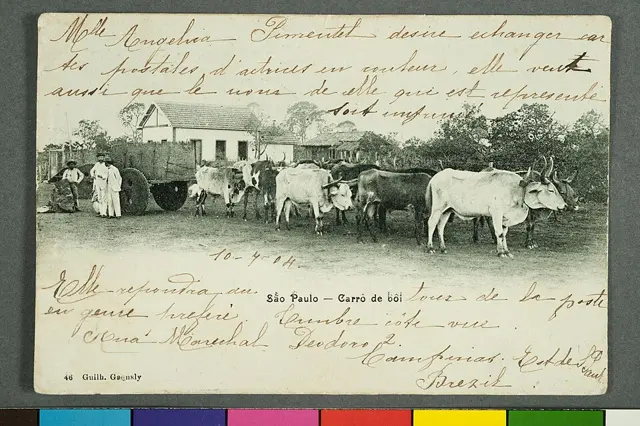 Mlle Angelica Pimentel desire echanger car
tes postales d'actrices en couleur, elle veut
aussi que le nom de celle qui est représenté
soit imprimé
10-7-04
São Paulo — Carro de bôi
Elle repondra du
tour de la poste
en genre préferé. Timbre côté vue.
Rua Marechal Deodoro
Campinas. Est de S. Paul
Brezil
46 Guilh. Gaensly